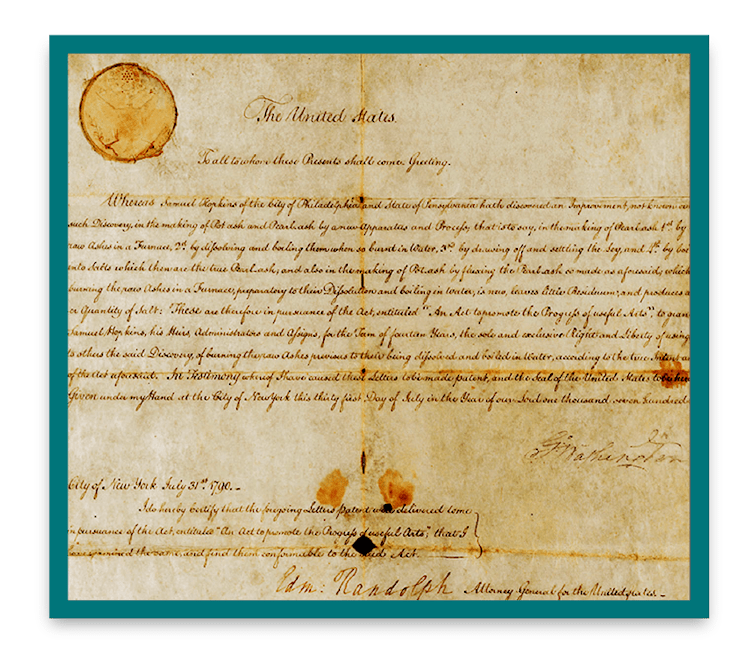 The United States.
To all to whom these Presents shall come. Greeting.
Whereas Samuel Hopkins of the City of Philadelphia and State of Pensylvania hath discovered an Improvement, not known
such Discovery, in the making of Pot ash and Pearl ash by a new Apparatus and Process; that is to say, in the making of Pearl ash 1st. by
raw Ashes in a Furnace, 2d. by dissolving and boiling them when so burnt in Water, 3d. by drawing off and settling the Ley, and 4th. by boi
into Salts which then are the true Pearl ash; and also in the making of Pot ash by fluxing the Pearl ash so made as aforesaid; which
burning the raw Ashes in a Furnace, preparatory to their Dissolution and boiling in Water, is new, leaves little Residuum; and produces a
er Quantity of Salt: These are therefore in pursuance of the Act, entituled "An Act to promote the Progress of useful Arts", to gran
Samuel Hopkins, his Heirs, Administrators and Assigns, for the Term of fourteen Years, the sole and exclusive Right and Liberty of using
to others the said Discovery, of burning the raw Ashes previous to their being dissolved and boiled in Water, according to the true Intent
of the Act aforesaid. In Testimony whereof I have caused these Letters to be made patent, and the Seal of the United States to be here
Given under my Hand at the City of New York this thirty first Day of July in the Year of our Lord one thousand seven hundred
G. Washington
City of New York July 31st. 1790. -
I do hereby Certify that the foregoing Letters patent were delivered to me
in pursuance of the Act, entituled "An Act to promote the Progress of useful Arts"; that I
have examined the same, and find them conformable to the said Act.
Edm: Randolph Attorney General for the United States -